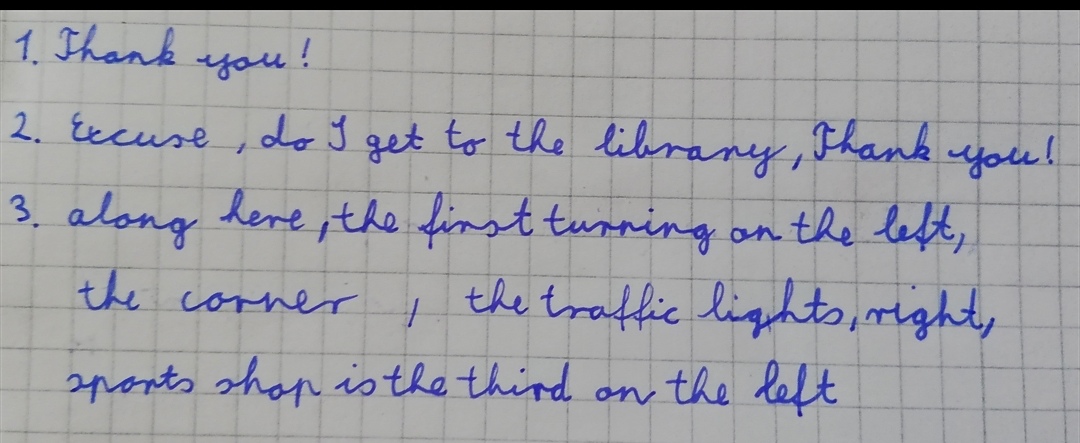 1. Thank you!
2. Excuse, do I get to the library, Thank you!
3. along here, the first turning on the left,
the corner, the traffic lights, right,
sports shop is the third on the left